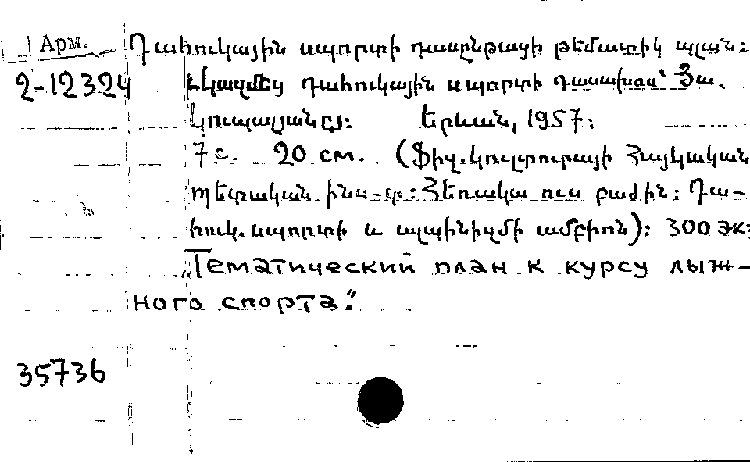 Арм. Դահուկային սպորտի դասընթացի թեմատիկ պլան:
2-12324 Կազմեց դահուկային սպորտի դասախոս՝ Յա.
Կուպալյանը: Երևան, 1957:
7 с. 20 см. (Ֆիզ.կուլտուրայի Հայկական
պետական ինս-տ: Հեռակա ուս բաժին: Դա-
հուկ.սպորտի և ալպինիզմի ամբիոն): 300 экз
"Тематический план к курсу лыж-
ного спорта".
35736